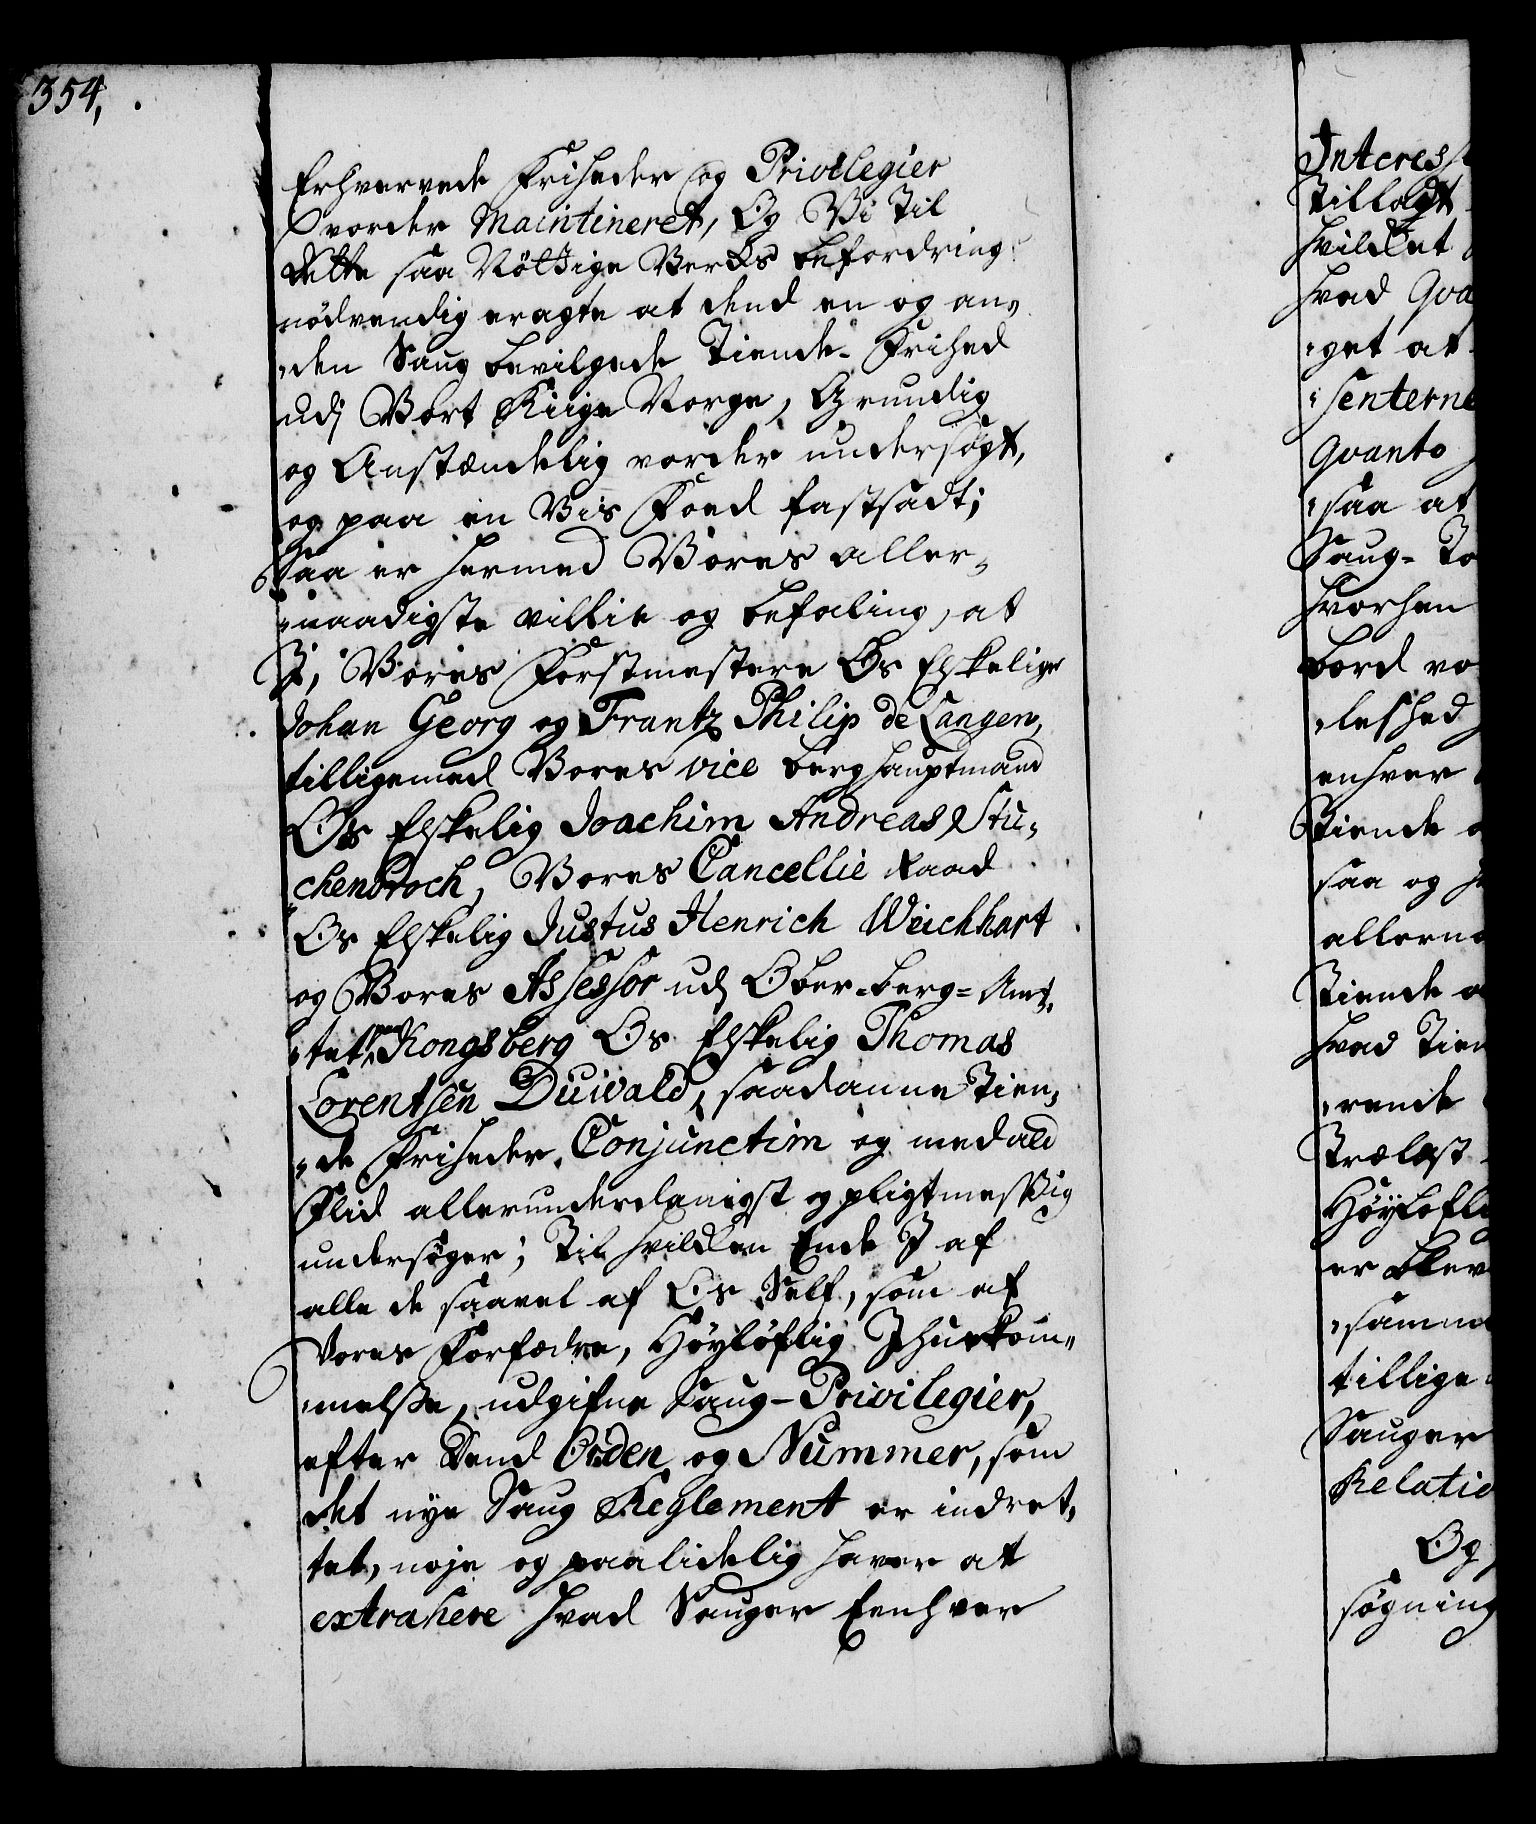 354.
Erhvervede Friheder og Privilegier
vorder Maintineret, Og Vi Til
dette saa Nöttige Verks befordring
nödvendig eragte at dend en og an,
,den Saug bevilgede Tiende-Frihed
udj Vort Riige Norge, Grundig
og Anstændelig vorder undersögt,
og paa en Vis Foed fastsadt;
Saa er hermed Vores aller,
,naadigste villie og befaling, at
I, Vores Forstmestere Os Elskelige
Johan Georg og Frantz Philip de Langen,
tilligemed Vores vice berghauptmand
Os Elskelig Joachim Andreas Stu,
chenbroch, Vores Cancellie Raad
Os Elskelig Justus Henrich Weichhart
og Vores Assessor udj Ober-berg-Amt,
,tet paa Kongsberg Os Elskelig Thomas
Lorentsen Duwald, saadanne Tien,
,de Friheder, Conjunctim og med ald
Flid allerunderdanigst og pligtmessig
undersöger; Til hvilken Ende I af
alle de saavel af Os Self, som af
Vores Forfædre, Höylöflig Ihukom,
,melsse, udgifne Saug-Privilegier,
efter Dend Orden og Nummer, som
det nye Saug Reglement er indret,
tet, nöje og paalidelig haver at
extrahere hvad Sauger Eenhver
Interess
Tillagt
hvilket
hvad Qva
,get at
,senterne
Qvanto
,saa at
Saug-To
hvorhen
bord vo
,leshed
enhver
Tiende
saa og
allerna
Tiende
hvad Tien
,rende
Trælast
Höylofl
er blev
,samme
tillige
Sauger
Relatio
Og
sögning